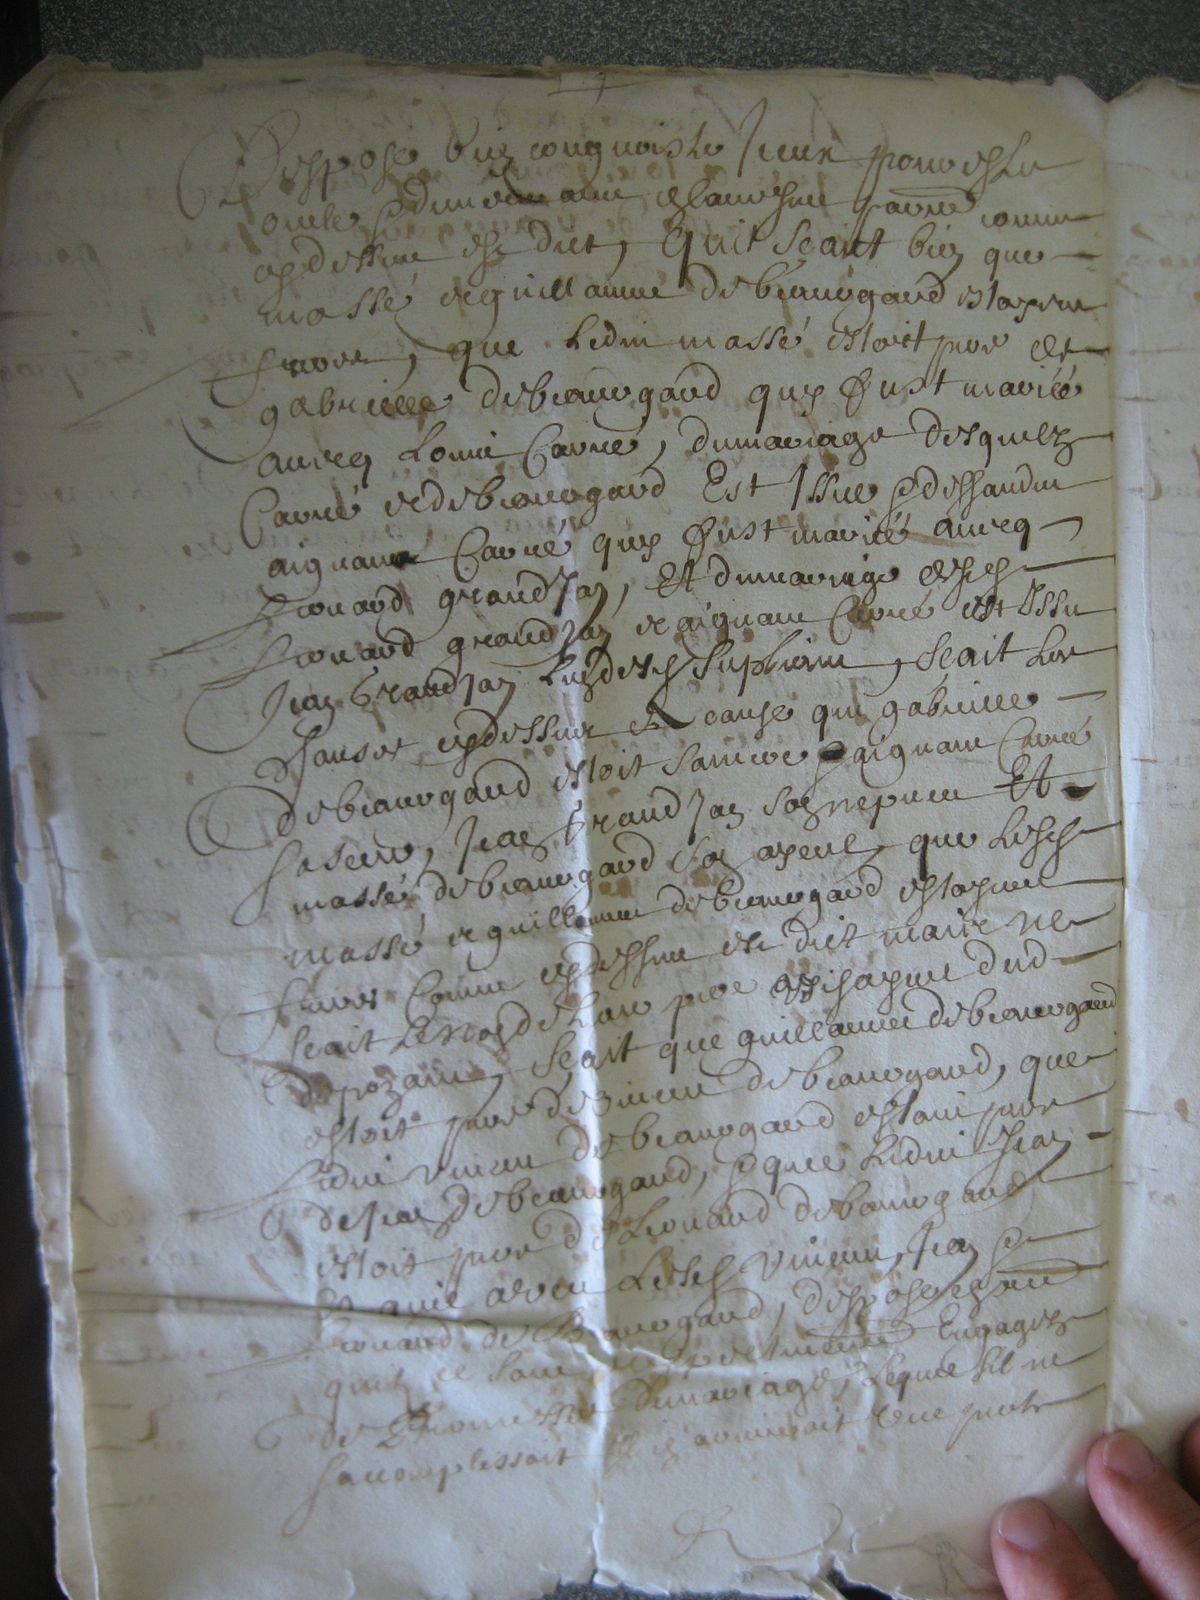 Despose bien congnoistre Jceux pour estre
oncle
cydessus est dict, Quil scait bien que
massé et guillaume de beauregard estoyent
freres, que Ledict massé estoit pere de
gabrielle de beauregard quy fust mariée
avecq Louis Carré, du mariage desquelz
Carré et de beauregard Est Jssue
aignane Carré quy fust mariée avecq
Leonard grandJan, Et du mariage desd
Leonard grandJan et aignane Carré est Jssu
Jean GrandJan Lun desd supliants, scait Les
choses cydessus a cause que gabrielle
de beauregard estoit sa mere aignane Carré
sa seur, Jean GrandJan son nepveu Et
massé de beauregard son ayeul, que Lesd
massé et guillaume de beauregard estoyent
freres Comme cydessus est dict mais ne
scait Le nom de Leur pere
depozant, scait que guillaume de beauregard
estoit pere de Vincent de beauregard, que
Ledict Vincent de beauregard estoit pere
de Jean de beauregard, et que Ledict Jean
estoit pere de Leonard de beauregard
Lesd Vincent, Jean et
Leonard de Beauregard, despose
quil
de promesse de mariage, Lequel sil ne
sacomplissoit une perte